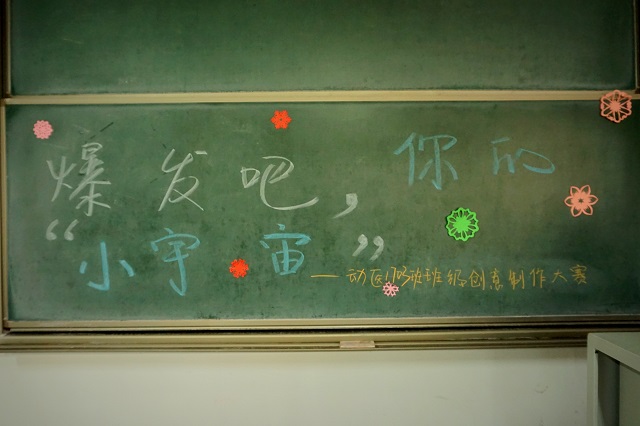 爆发吧，你的
“小宇宙”
——动医1703班班级创意制作大赛